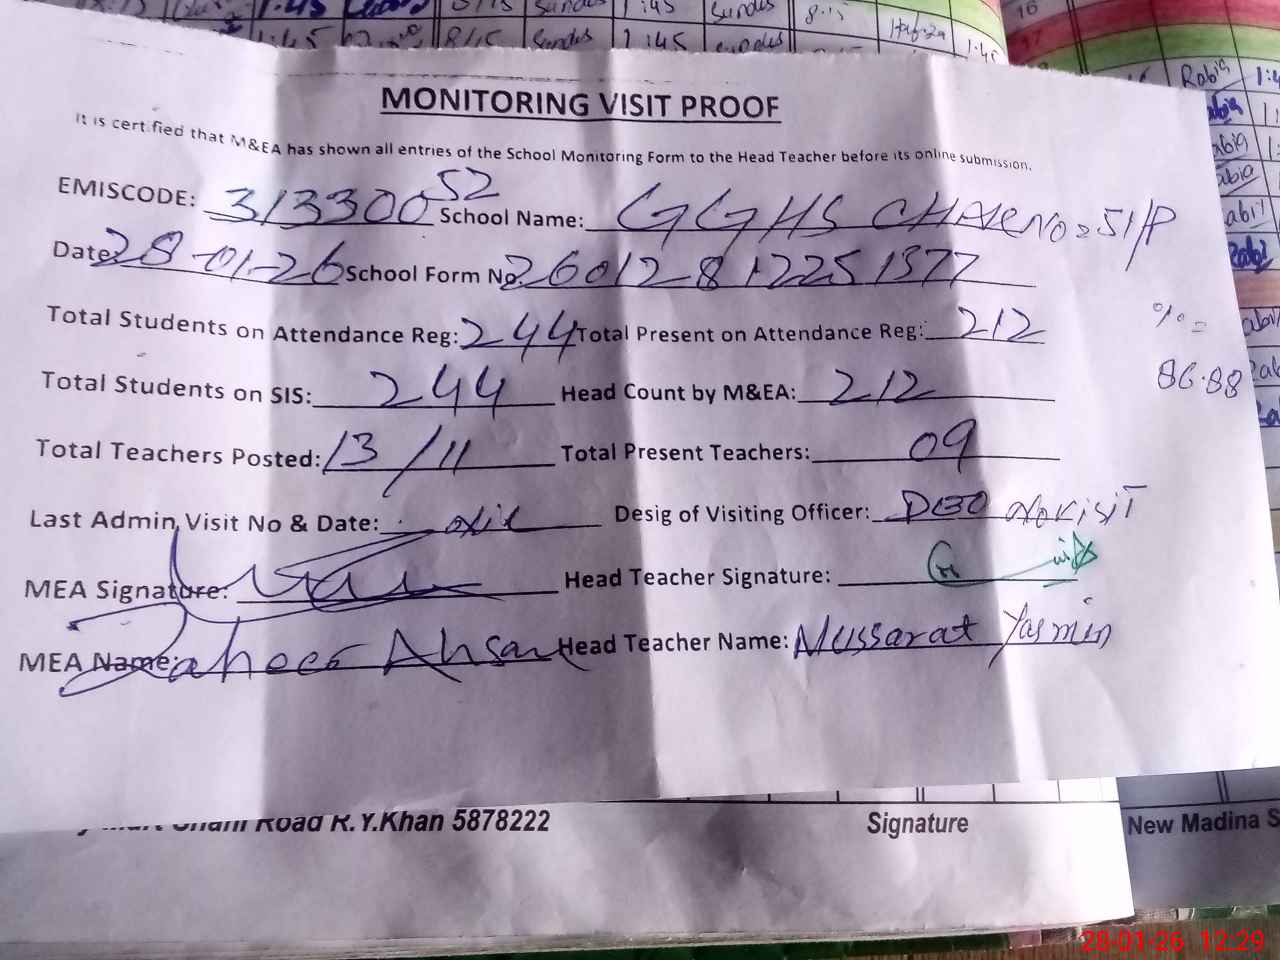 1:45 8:15 Sundus 1:45 Sundus 8:15
1:45 8:15 Sundus 1:45 Sundus 1:45
16
17
Rabia 1:4
MONITORING VISIT PROOF
It is certified that M&EA has shown all entries of the School Monitoring Form to the Head Teacher before its online submission.
EMISCODE: 31330052 School Name: GGHS CHAK NO. 51/P
Date: 28-01-26 School Form No. 26012812251377
Total Students on Attendance Reg: 244 Total Present on Attendance Reg: 212
% =
86.88
Total Students on SIS: 244 Head Count by M&EA: 212
Total Teachers Posted: 13/11 Total Present Teachers: 09
Last Admin Visit No & Date: Desig of Visiting Officer: DEO No Visit
MEA Signature: Head Teacher Signature:
MEA Name: Ahsan Head Teacher Name: Mussarat Yasmin
Road R.Y.Khan 5878222 Signature New Madina S
28-01-26 12:29